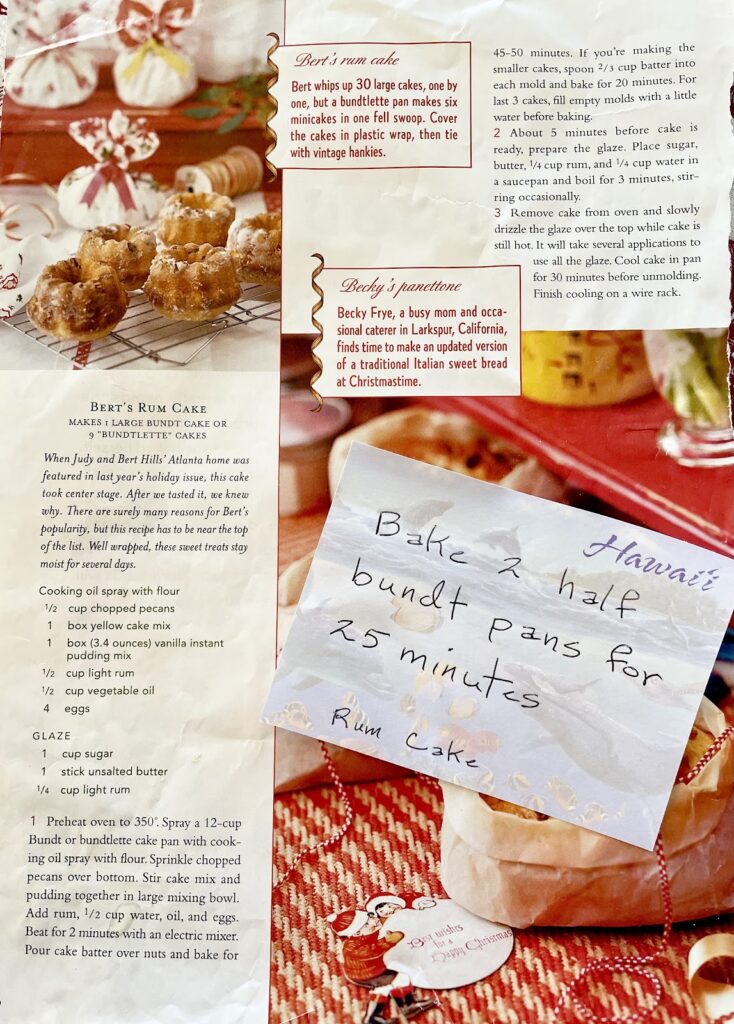 Bert's rum cake
Bert whips up 30 large cakes, one by
one, but a bundtlette pan makes six
minicakes in one fell swoop. Cover
the cakes in plastic wrap, then tie
with vintage hankies.
Becky's panettone
Becky Frye, a busy mom and occa-
sional caterer in Larkspur, California,
finds time to make an updated version
of a traditional Italian sweet bread
at Christmastime.
BERT'S RUM CAKE
MAKES 1 LARGE BUNDT CAKE OR
9 "BUNDTLETTE" CAKES
When Judy and Bert Hills' Atlanta home was
featured in last year's holiday issue, this cake
took center stage. After we tasted it, we knew
why. There are surely many reasons for Bert's
popularity, but this recipe has to be near the top
of the list. Well wrapped, these sweet treats stay
moist for several days.
Cooking oil spray with flour
1/2 cup chopped pecans
1 box yellow cake mix
1 box (3.4 ounces) vanilla instant
pudding mix
1/2 cup light rum
1/2 cup vegetable oil
4 eggs
GLAZE
1 cup sugar
1 stick unsalted butter
1/4 cup light rum
1 Preheat oven to 350°. Spray a 12-cup
Bundt or bundtlette cake pan with cook-
ing oil spray with flour. Sprinkle chopped
pecans over bottom. Stir cake mix and
pudding together in large mixing bowl.
Add rum, 1/2 cup water, oil, and eggs.
Beat for 2 minutes with an electric mixer.
Pour cake batter over nuts and bake for
45-50 minutes. If you're making the
smaller cakes, spoon 2/3 cup batter into
each mold and bake for 20 minutes. For
last 3 cakes, fill empty molds with a little
water before baking.
2 About 5 minutes before cake is
ready, prepare the glaze. Place sugar,
butter, 1/4 cup rum, and 1/4 cup water in
a saucepan and boil for 3 minutes, stir-
ring occasionally.
3 Remove cake from oven and slowly
drizzle the glaze over the top while cake is
still hot. It will take several applications to
use all the glaze. Cool cake in pan
for 30 minutes before unmolding.
Finish cooling on a wire rack.
Hawai'i
Bake 2 half
bundt pans for
25 minutes
Rum Cake
Best wishes
for a
Happy Christmas